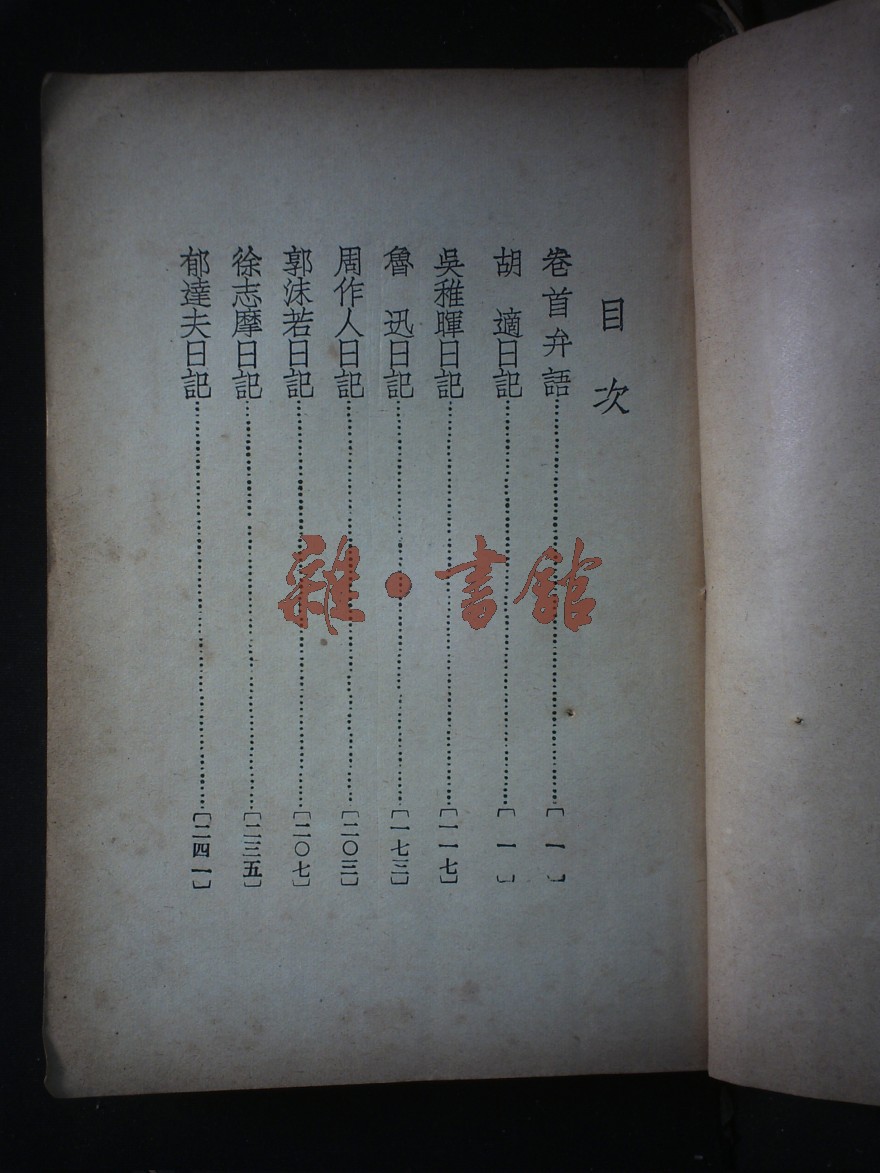 目次
卷首弁語…………〔一〕
胡適日記…………〔一〕
吳稚暉日記…………〔一一七〕
魯迅日記…………〔一七三〕
周作人日記…………〔二〇三〕
郭沫若日記…………〔二〇七〕
徐志摩日記…………〔二三五〕
郁達夫日記…………〔二四一〕
雜·書館